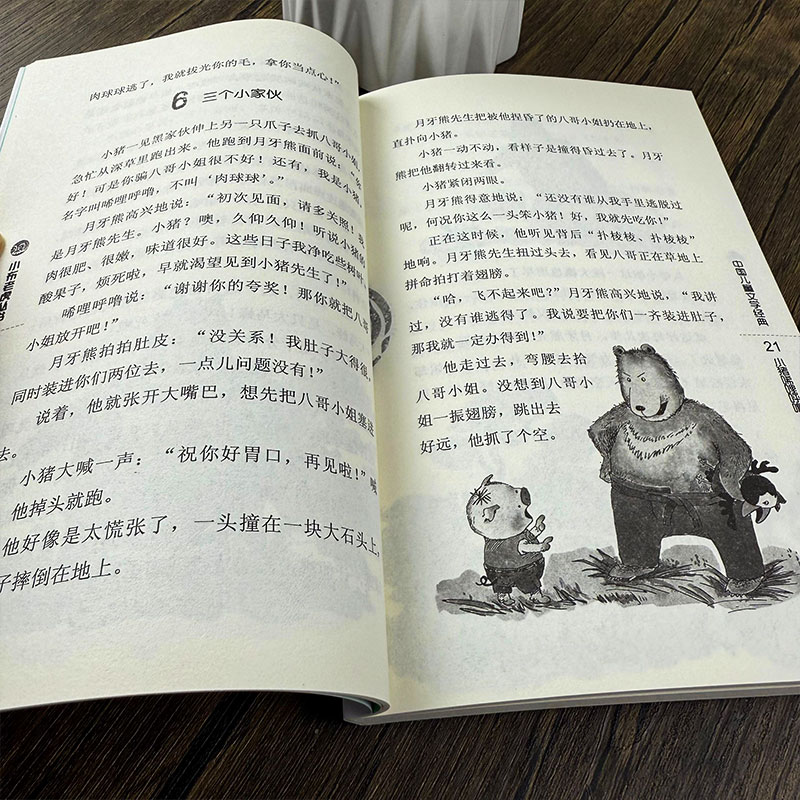 肉球球逃了，我就拔光你的毛，拿你当点心！”
6 三个小家伙
小猪一见黑家伙伸上另一只爪子去抓八哥小姐，
急忙从深草里跑出来。他跑到月牙熊面前说：“你
好！可是你骗八哥小姐很不好！还有，我是小猪，
名字叫唏哩呼噜，不叫‘肉球球’。”
月牙熊高兴地说：“初次见面，请多关照！我
是月牙熊先生。小猪？噢，久仰久仰！听说小猪的
肉很肥、很嫩，味道很好。这些日子我净吃些树叶、
酸果子，烦死啦，早就渴望见到小猪先生了！”
唏哩呼噜说：“谢谢你的夸奖！那你就把八哥
小姐放开吧！”
月牙熊拍拍肚皮：“没关系！我肚子大得很，
同时装进你们两位去，一点儿问题没有！”
说着，他就张开大嘴巴，想先把八哥小姐塞进
去。
小猪大喊一声：“祝你好胃口，再见啦！”
他掉头就跑。
他好像是太慌张了，一头撞在一块大石头上，
子摔倒在地上。
小布老虎丛书
月牙熊先生把被他捏昏了的八哥小姐扔在地上，
直扑向小猪。
小猪一动不动，看样子是撞得昏过去了。月牙
熊把他翻转过来看。
小猪紧闭两眼。
月牙熊得意地说：“还没有谁从我手里逃脱过
呢，何况你这么一头笨小猪！好，我就先吃你！”
正在这时候，他听见背后“扑棱棱、扑棱棱”
地响。月牙熊先生扭过头去，看见八哥正在草地上
拼命拍打着翅膀。
“哈，飞不起来吧？”月牙熊高兴地说，“我讲
过，没有谁逃得了。我说要把你们一齐装进肚子，
那我就一定办得到！”
他走过去，弯腰去拾
八哥小姐。没想到八哥小
姐一振翅膀，跳出去
好远，他抓了个空。
中国儿童文学经典
21
小猪唏哩呼噜